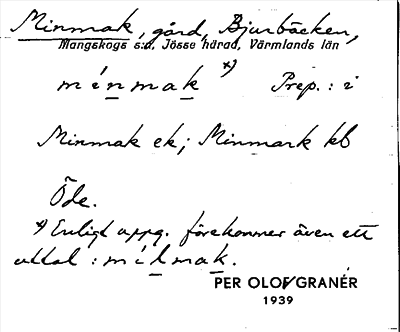 Minmak, gård, Bjurbäcken,
Mangskogs s:n, Jösse härad, Värmlands län
mínmak x) Prep.: i
Minmak ek; Minmark kb
Öde.
x) Enligt uppg. förekommer även ett
uttal : mílmak.
PER OLOF GRANÉR
1939